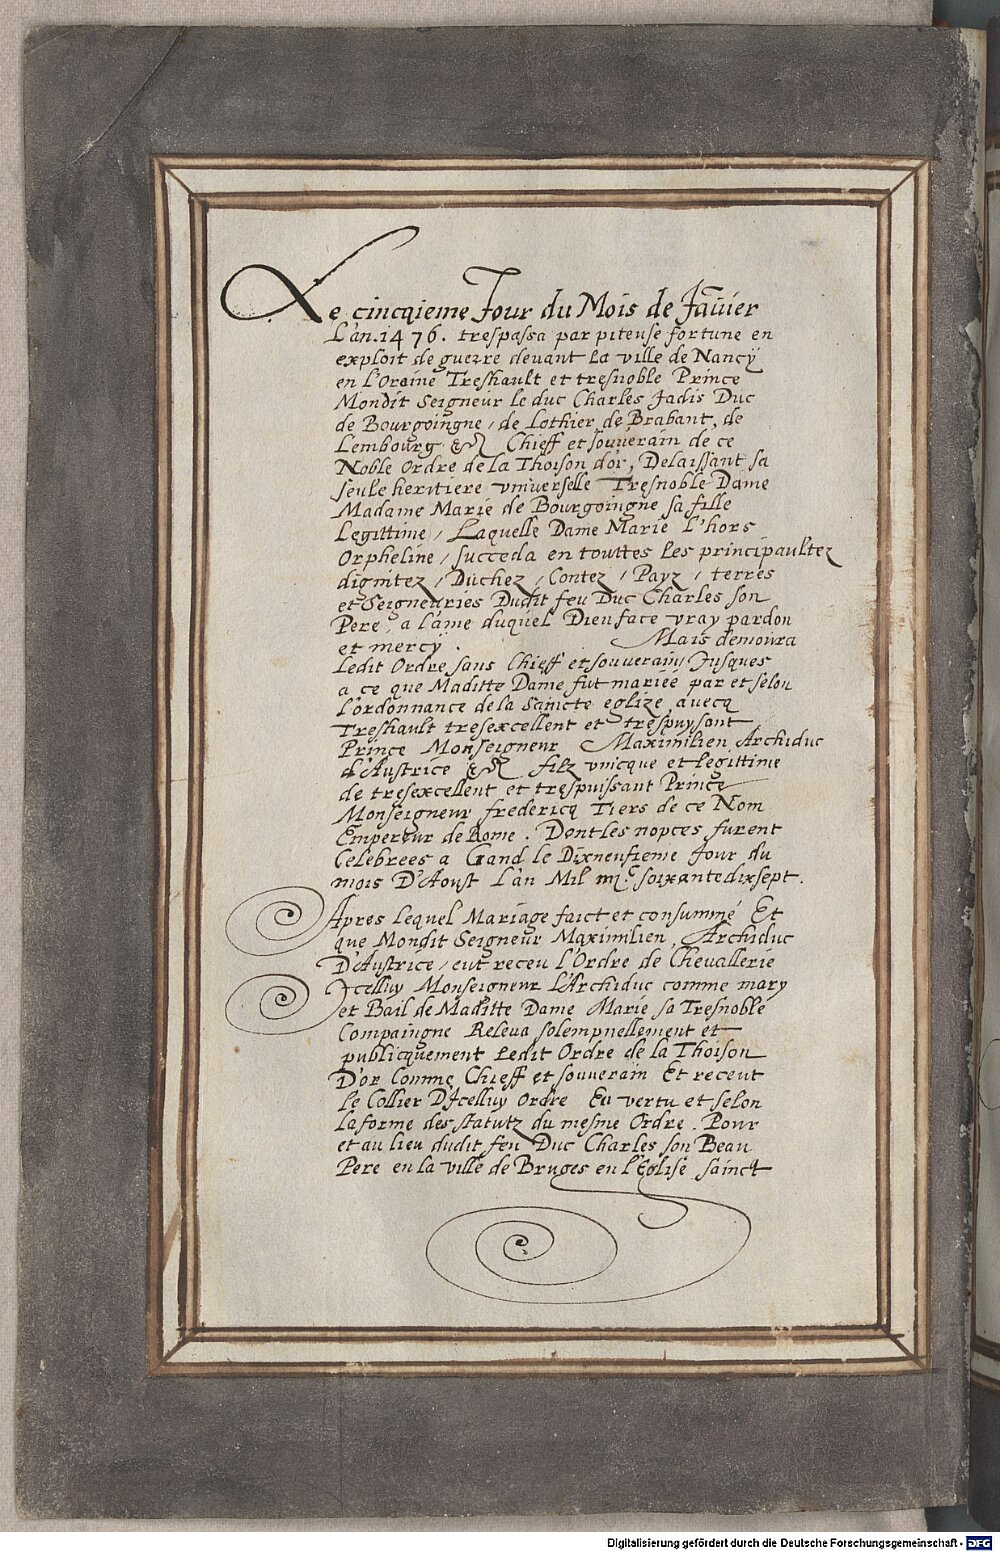 Le cincqieme Jour du Mois de Jāvier
L'an.1476. trespassa par piteuse fortune en
exploit de guerre devant la ville de Nancÿ
en L'Oraine Treshault et tresnoble Prince
Mondit Seigneur le duc Charles Jadis Duc
de Bourgoingne, de Lothier, de Brabant, de
Lembourg &c Chieff et souverain de ce
Noble Ordre de la Thoison d'or, Delaissant sa
seule heritiere vniverselle Tresnoble Dame
Madame Marie de Bourgoingne sa fille
Legittime, Laquelle Dame Marie L'hors
Orpheline, succeda en touttes les principaultez
dignitez, Duchez, Contez, Payz, terres
et Seigneuries Dudit feu Duc Charles son
Pere, a l'ame duquel Dieu face vray pardon
et mercÿ. Mais demoura
Ledit Ordre sans Chieff et souverain, Jusques
a ce que Maditte Dame fut mariee par et selon
L'ordonnance de la saincte eglize auecq
Treshault tresexcellent et trespuysant
Prince Monseigneur Maximilien Archiduc
d'Austrice &c filz vnicque et legittime
de tresexcellent et trespuissant Prince
Monseigneur frederica Tiers de ce Nom
Empereur de Rome. Dont les nopces furent
Celebrees a Gand le Dixneufieme Jour du
mois D'Aoust L'an Mil iiijc. soixante dixsept.
Apres Lequel Mariage faict et consummé Et
que Mondit Seigneur Maximilien, Archiduc
D'Austrice, eut receu l'Ordre de Chevallerie
Jcelluy Monseigneur l'Archiduc comme mary
et Bail de Maditte Dame Marie sa Tresnoble
Compaingne Releva solempnellement et
publicquement Ledit Ordre de la Thoison
D'or Comme Chieff et souverain Et receut
le Collier D'Icelluy Ordre En vertu et selon
la forme des statutz du mesme Ordre. Pour
et au lieu dudit feu Duc Charles son Beau
Pere en la ville de Bruges en l'Eglise sainct
Digitalisierung gefördert durch die Deutsche Forschungsgemeinschaft - DFG